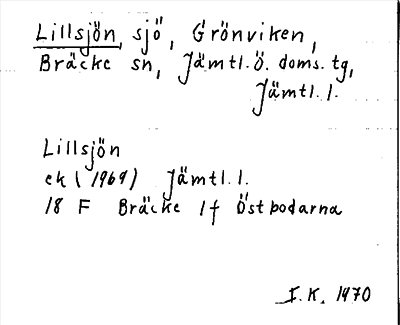 Lillsjön, sjö, Grönviken,
Bräcke sn, Jämtl.Ö. doms. tg,
Jämtl. l.
Lillsjön
ek (1969) Jämtl. l.
18 F Bräcke 1f Östbodarna
I.K. 1970